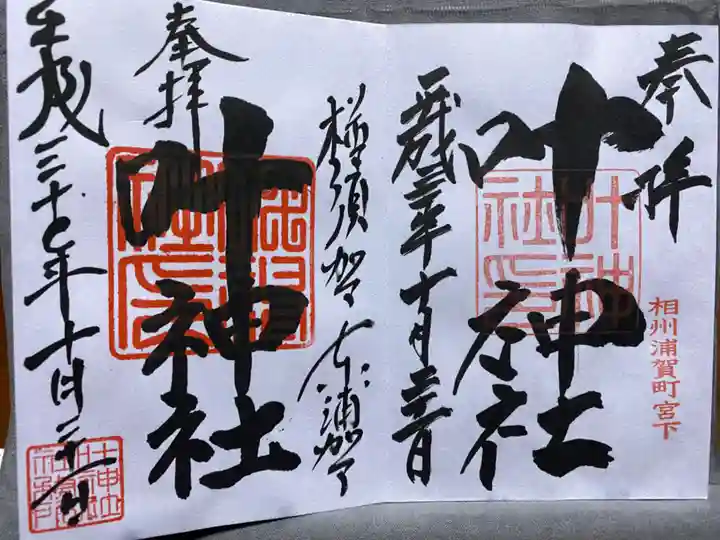 奉拝
叶神社
叶神社
相州浦賀町宮下
平成三十年十月二十一日
横須賀 東浦賀
奉拝
叶神社
平成三十年十月二十一日